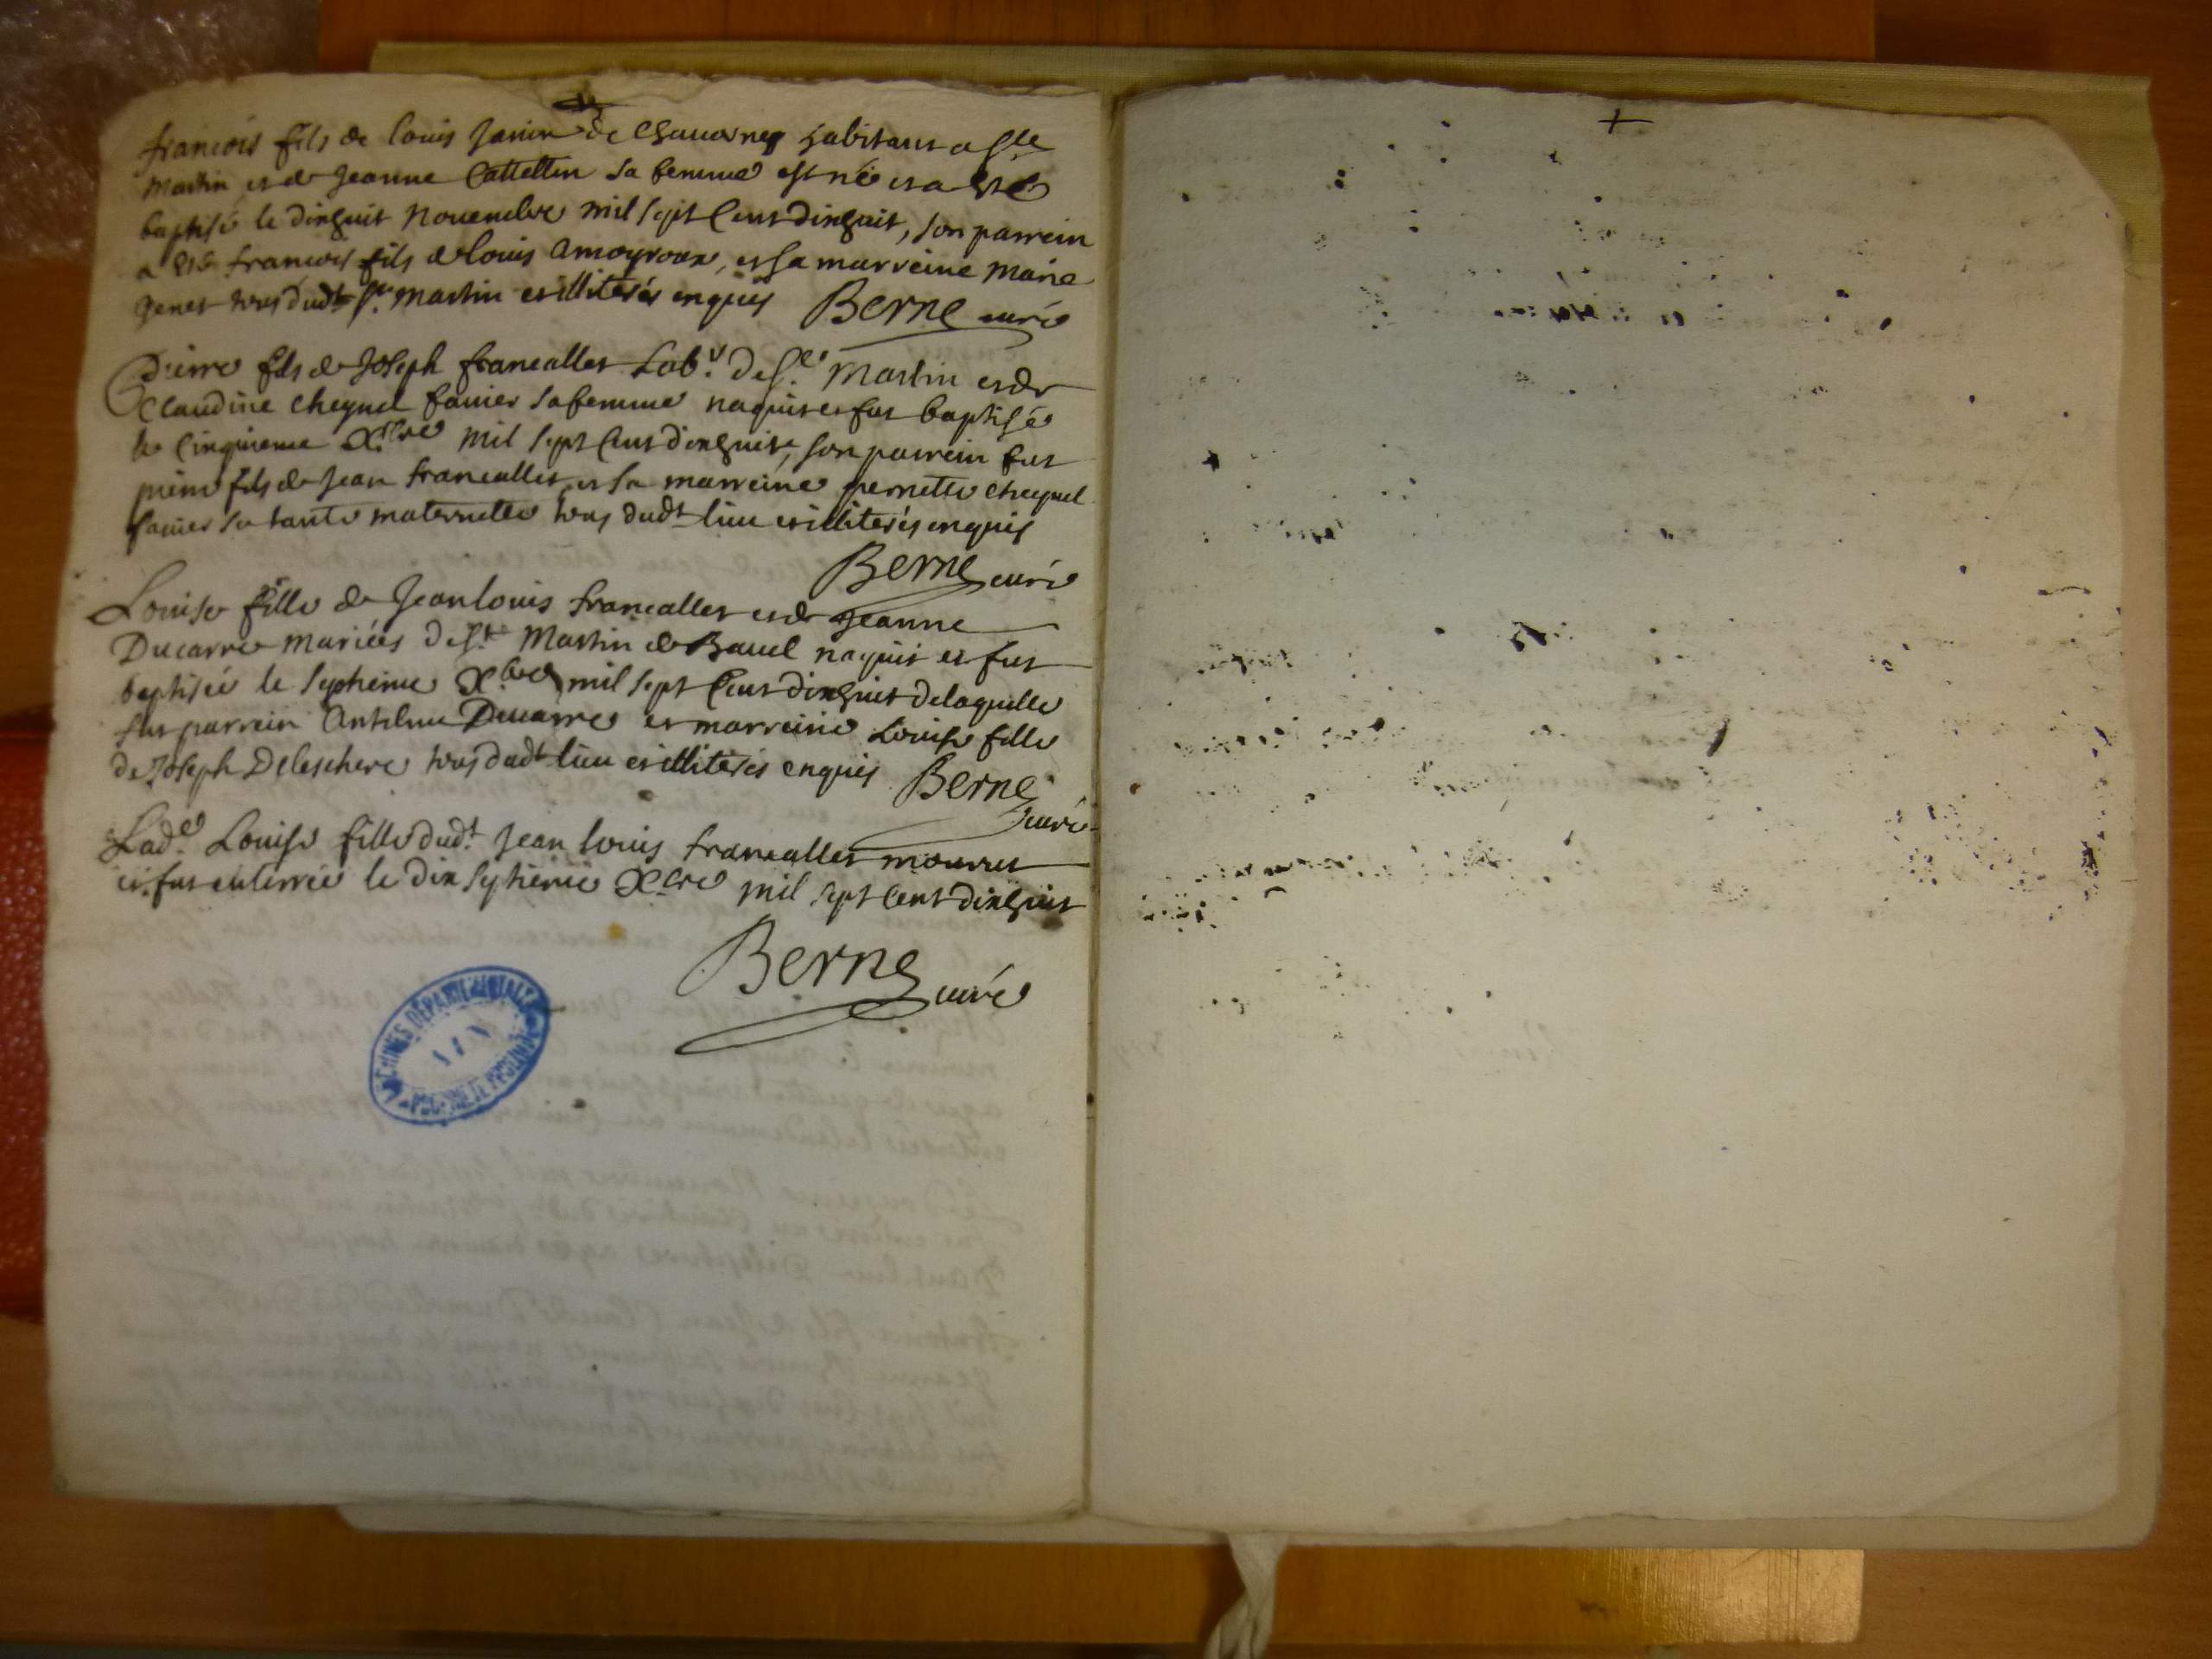 francois fils de louis Janin de Chauornay habitant a St
Martin et de Jeanne Cattelin sa femme est né et a esté
baptisé le dixhuit Nouembre mil sept Cent dixhuit, son parrein
a esté francois fils de louis Amoyroux, et sa marreine Marie
Genet tous dudt St. Martin et illiterés enquis Berne curé
Pierre fils de Joseph francallet Labr. de St. Martin et de
Claudine cheynel fauier sa femme naquit et fut baptisé
le Cinquieme Xbre mil sept Cent dixhuit, son parrein fut
pierre fils de Jean francallet, et sa marreine pernette cheynel
fauier sa tante maternelle tous dudt lieu et illiterés enquis
Berne curé
Louise fille de Jean louis francallet et de Jeanne
Ducarre mariées de St. Martin de Bauel naquit et fut
baptisée le septieme Xbre mil sept Cent dixhuit de laquelle
fut parrein Antelme Ducarre et marreine Louise fille
de Joseph Deleschere tous dudt lieu et illiterés enquis Berne
curé
Lade. Louise fille dudt. Jean louis francallet mourut
et fut enterrée le dix septieme Xbre mil sept Cent dixhuit
Berne curé
ARCHIVES DÉPARTEMENTALES
AIN